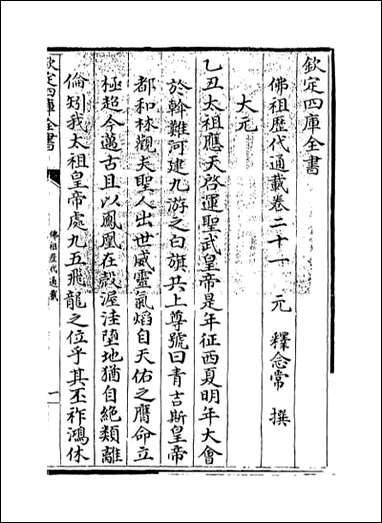 欽定四庫全書
佛祖歴代通載卷二十一　元　釋念常　撰
大元
乙丑太祖應天啓運聖武皇帝是年征西夏明年大會
於斡難河建九游之白旗共上尊號曰青吉斯皇帝
都和林觀夫聖人出世威靈氣熖自天佑之膺命立
極超今邁古且以鳳凰在㲉渥洼墮地猶自絶類離
倫矧我太祖皇帝處九五飛龍之位乎其丕祚鴻休
欽定四庫全書
佛祖歴代通載
一